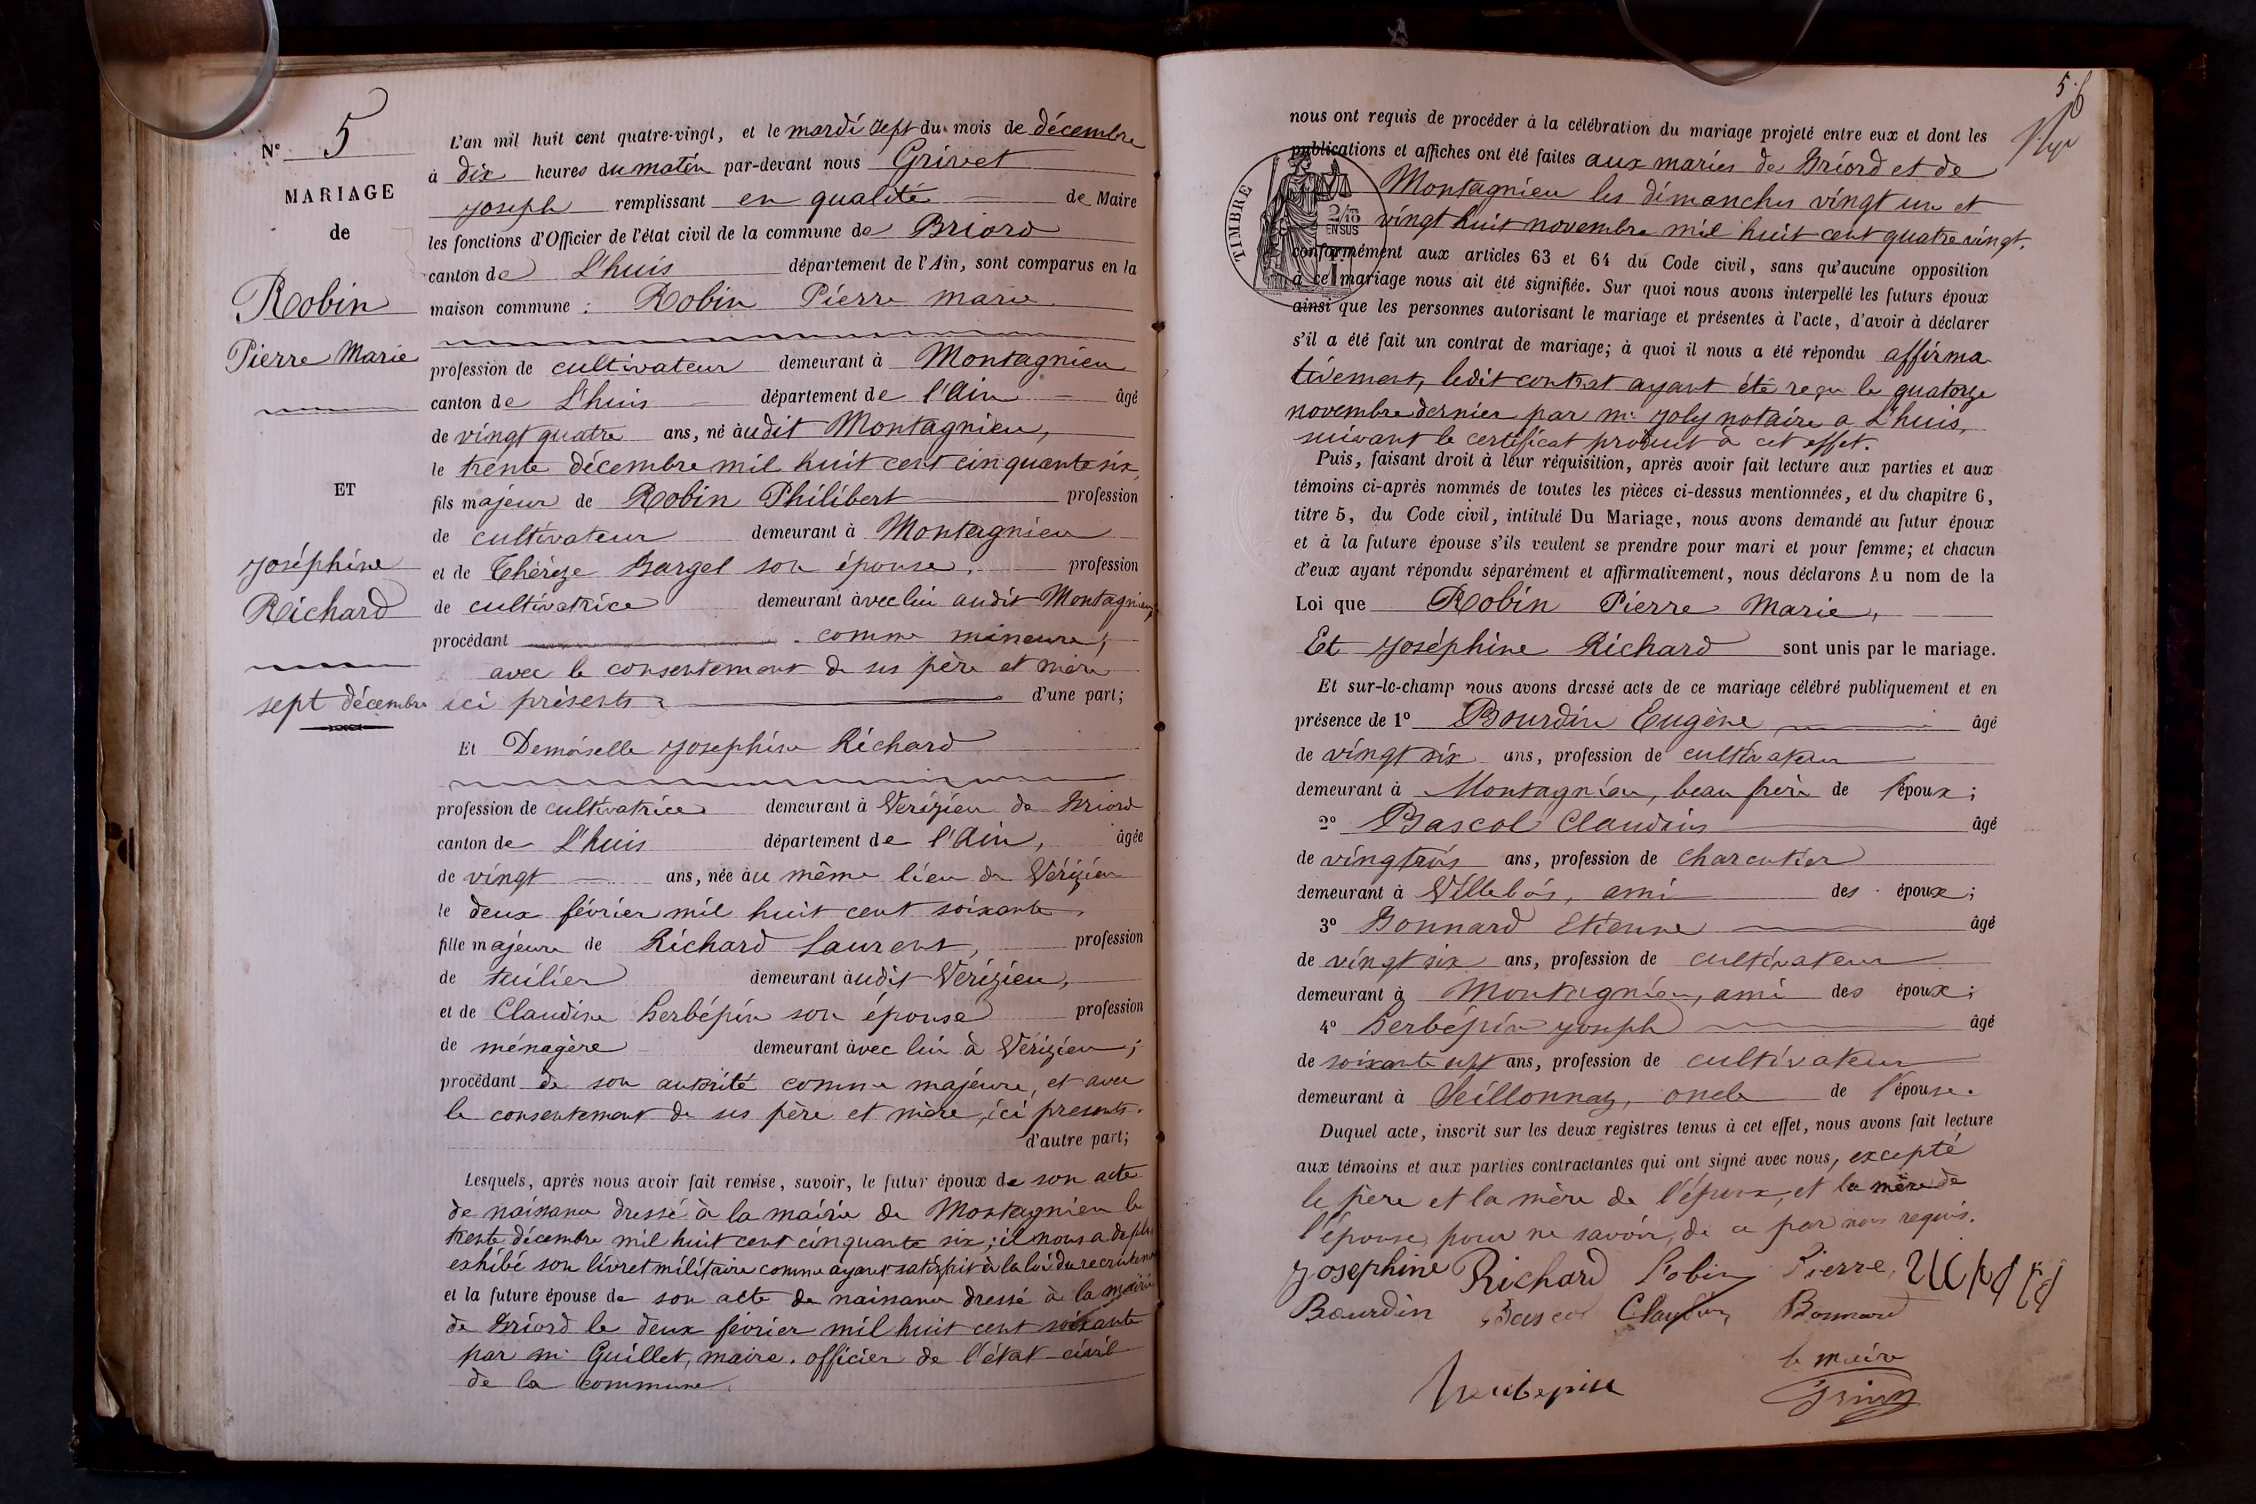 N° 5
MARIAGE
de
Robin
Pierre Marie
ET
Joséphine
Richard
sept décembre
L'an mil huit cent quatre-vingt, et le mardi sept du mois de décembre
à dix heures du matin par-devant nous Grivet
Joseph remplissant en qualité de Maire
les fonctions d'Officier de l'état civil de la commune de Briord
canton de L'huis département de l'Ain, sont comparus en la
maison commune : Robin Pierre Marie
profession de cultivateur demeurant à Montagnieu
canton de L'huis département de l'Ain âgé
de vingt quatre ans, né àudit Montagnieu,
le trente décembre mil huit cent cinquante six
fils majeur de Robin Philibert profession
de cultivateur demeurant à Montagnieu
et de Thérèze Bargel son épouse, profession
de cultivatrice demeurant àvec lui audit Montagnieu,
procédant comme mineure,
avec le consentement de ses père et mère
ici présents d'une part;
Et Demoiselle Josephine Richard
profession de cultivatrice demeurant à Vérizieu de Briord
canton de L'huis département de l'Ain, âgée
de vingt ans, née àu même lieu de Vérizieu
le deux février mil huit cent soixante,
fille majeure de Richard Laurent, profession
de tuilier demeurant àudit Vérizieu,
et de Claudine Herbépin son épouse profession
de ménagère demeurant àvec lui à Vérizieu;
procédant de son autorité comme majeure, et avec
le consentement de ses père et mère, ici présents.
d'autre part;
Lesquels, après nous avoir fait remise, savoir, le futur époux de son acte
de naissance dressé à la mairie de Montagnieu le
trente décembre mil huit cent cinquante six; il nous a de plus
exhibé son livret militaire comme ayant satisfait à la loi du recrutement
et la future épouse de son acte de naissance dressé à la mairie
de Briord le deux février mil huit cent soixante
par Mr Guillet, maire, officier de l'état-civil
de la commune.
5.
nous ont requis de procéder à la célébration du mariage projeté entre eux et dont les
publications et affiches ont été faites aux mairies de Briord et de
Montagnieu les dimanches vingt un et
vingt huit novembre mil huit cent quatre vingt.
TIMBRE
2/10
EN SUS
conformément aux articles 63 et 64 du Code civil, sans qu'aucune opposition
à ce mariage nous ait été signifiée. Sur quoi nous avons interpellé les futurs époux
ainsi que les personnes autorisant le mariage et présentes à l'acte, d'avoir à déclarer
s'il a été fait un contrat de mariage; à quoi il nous a été répondu affirma
tivement, ledit contrat ayant été reçu le quatorze
novembre dernier par Me Joly notaire a L'huis,
suivant le certificat produit à cet effet.
Puis, faisant droit à leur réquisition, après avoir fait lecture aux parties et aux
témoins ci-après nommés de toutes les pièces ci-dessus mentionnées, et du chapitre 6,
titre 5, du Code civil, intitulé Du Mariage, nous avons demandé au futur époux
et à la future épouse s'ils veulent se prendre pour mari et pour femme; et chacun
d'eux ayant répondu séparément et affirmativement, nous déclarons Au nom de la
Loi que Robin Pierre Marie,
Et Joséphine Richard sont unis par le mariage.
Et sur-le-champ nous avons dressé acte de ce mariage célébré publiquement et en
présence de 1° Bourdin Eugène, âgé
de vingt six ans, profession de cultivateur
demeurant à Montagnieu, beau frère de l'époux;
2° Bascol Claudius âgé
de vingt trois ans, profession de charcutier
demeurant à Villebois, ami des époux;
3° Bonnard Etienne âgé
de vingt six ans, profession de cultivateur
demeurant à Montagnieu, ami des époux;
4° Herbépin Joseph âgé
de soixante sept ans, profession de cultivateur
demeurant à Seillonnaz, oncle de l'épouse.
Duquel acte, inscrit sur les deux registres tenus à cet effet, nous avons fait lecture
aux témoins et aux parties contractantes qui ont signé avec nous, excepté
le père et la mère de l'époux, et la mère de
l'épouse, pour ne savoir, de ce par nous requis.
Josephine Richard Robin Pierre
Bourdin Bascol Claudius Bonnard
le maire
Herbepin Grivet